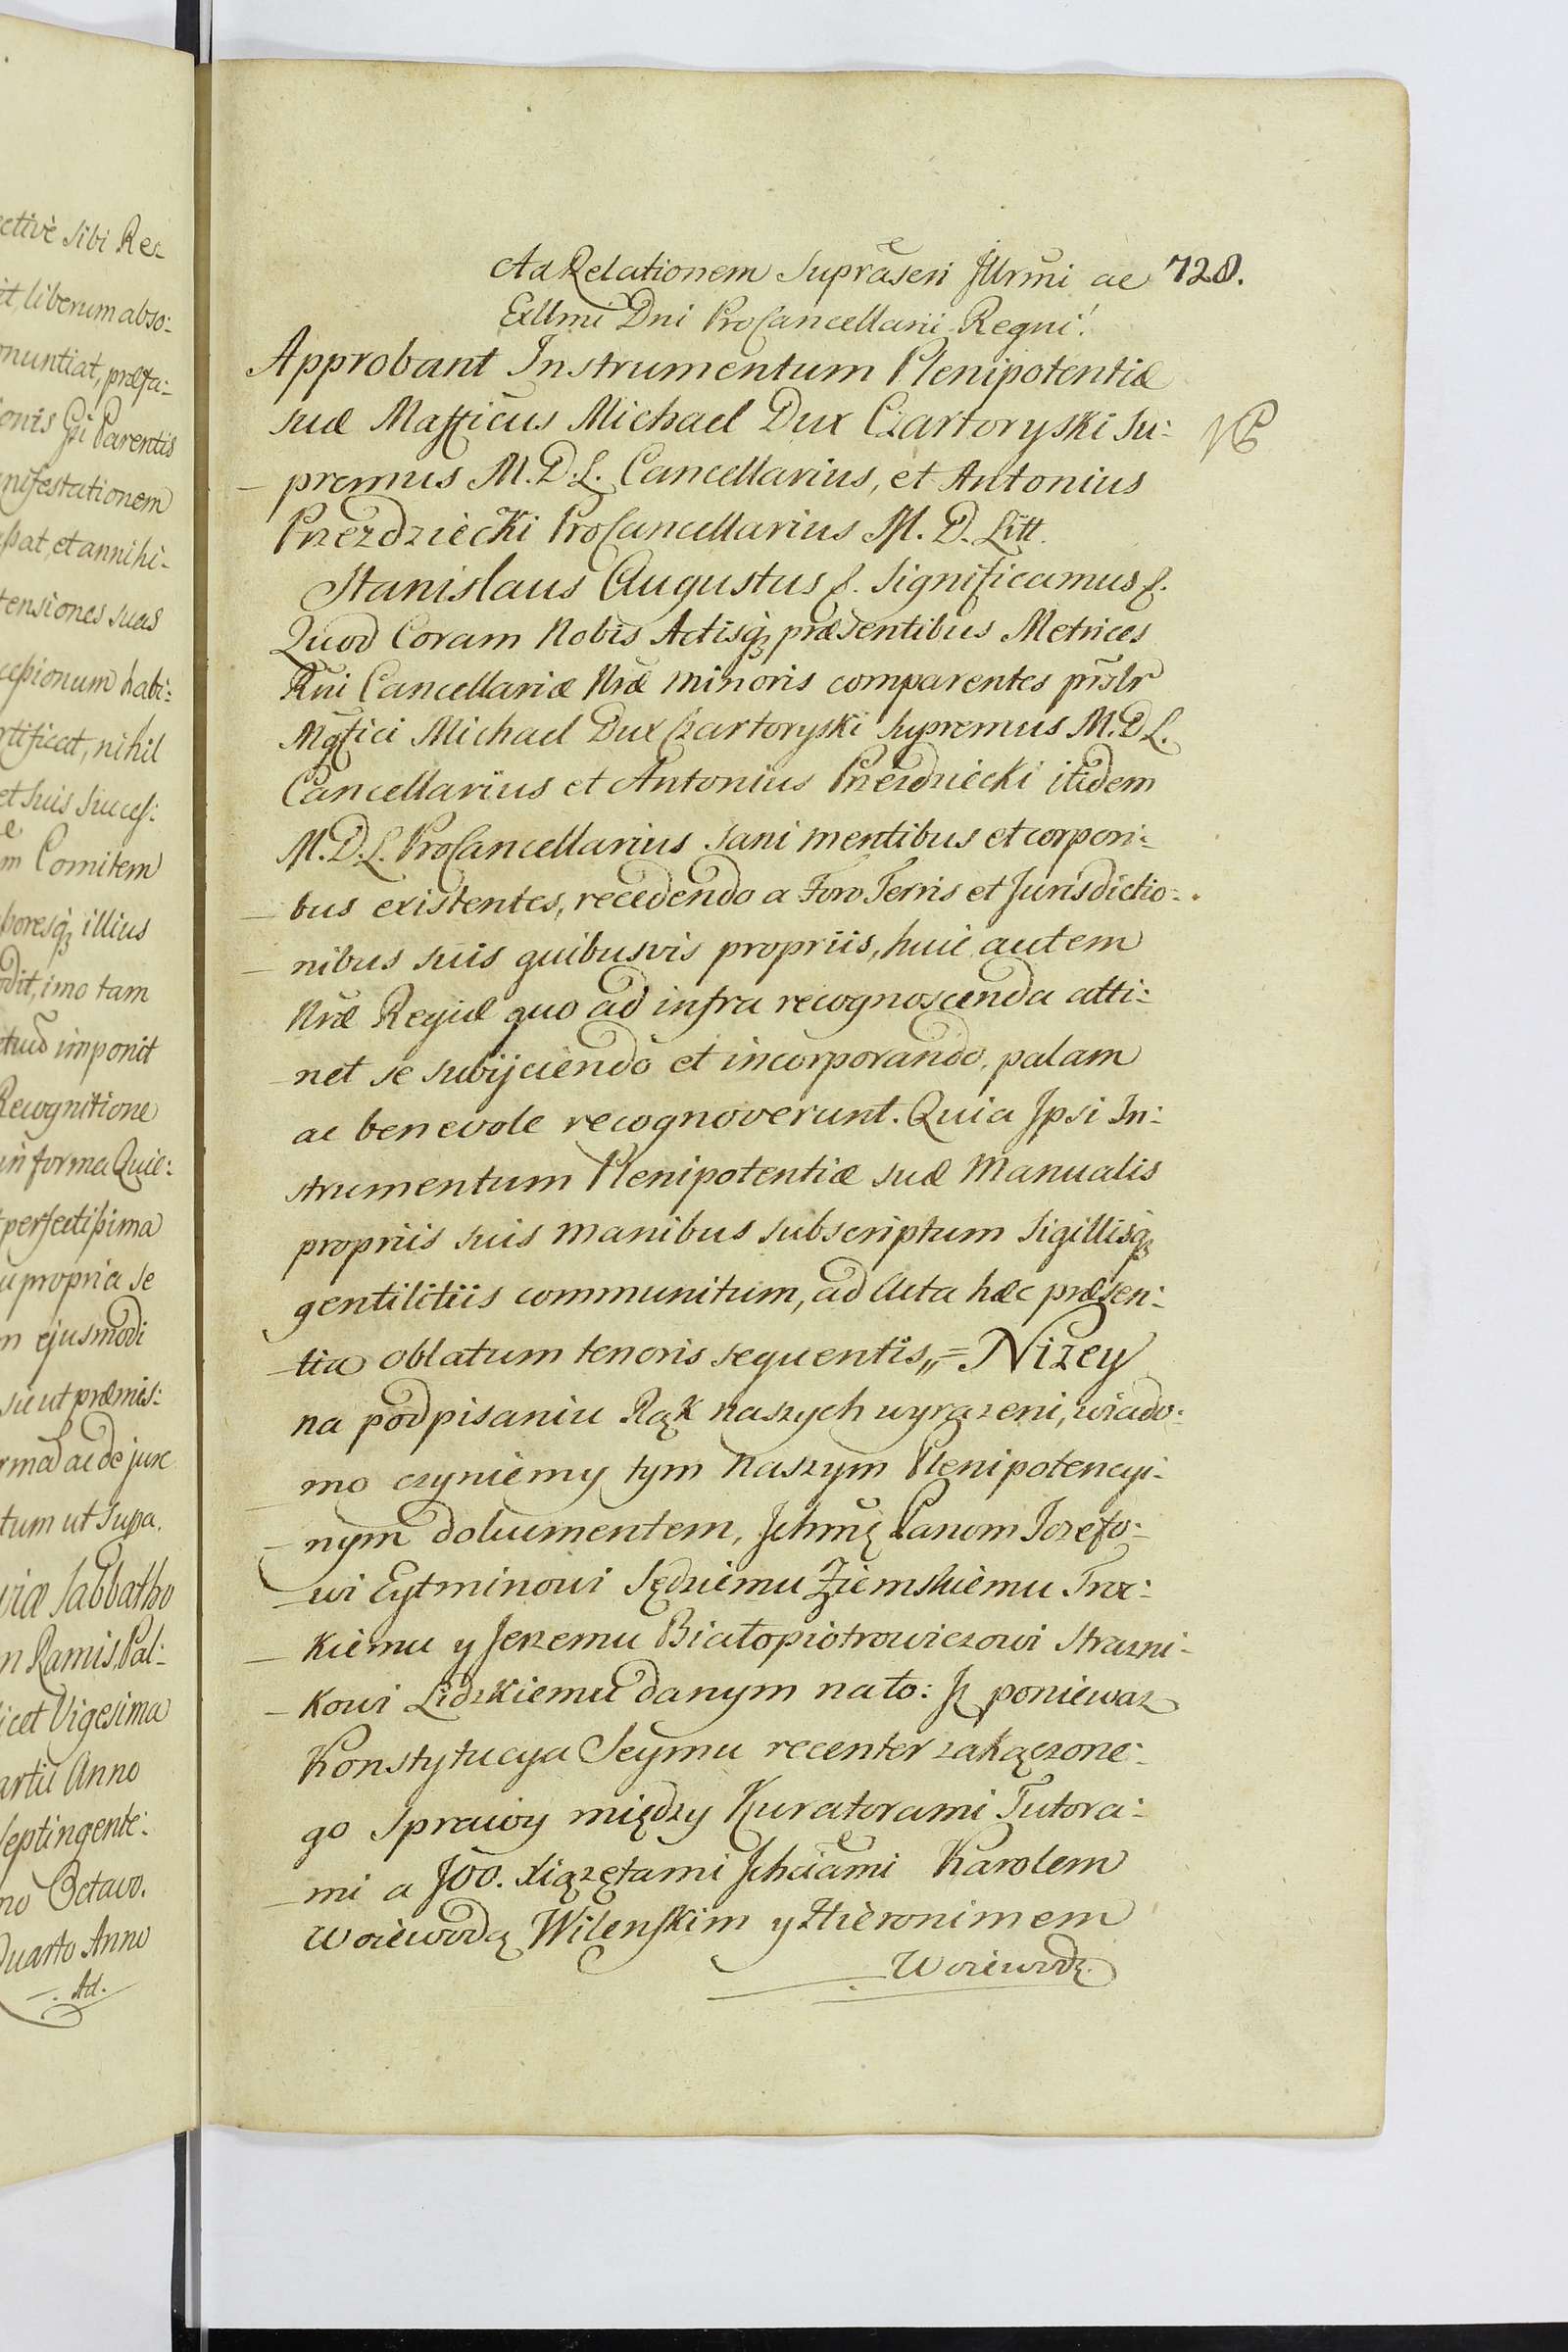 ective sibi Res-
it, liberum abso:
nuntiat, præfa:
ionis Gsi Parentis
nifestationem
ßat, et annihi-
tensiones suas
ceßionum habi:
rtificat, nihil
et suis succes:
m Comitem
ßoresq3 illius
odit, imo tam
tuũ imponit
Recognitione
in forma Quie:
perfectißima
u propria se
m ejusmodi
sicut præmis:
rmã ac de jure
tum ut supa.
viæ Sabbatho
m Ramis, Pal:
icet Vigesima
artii Anno
septingente:
mo Octavo.
Quarto Anno
Ad.
Ad Relationem Suprãseri Jllrmi ac 728.
Exllmi Dni ProCancellarii Regni.
Approbant Instrumentum Plenipotentiæ
suæ Maffĩcus Michael Dux Czartoryski Su:
premus M. D. L. Cancellarius, et Antonius
Przezdziecki ProCancellarius M. D. Litt.
Stanislaus Augustus &. Significamus &.
Quod Coram Nobis Actisq3 præsentibus Metrices
Rñi Cancellariæ Nræ minoris comparentes prñslr
Mgffici Michael Dux Czartoryski Supremus M. D L.
Cancellarius et Antonius Przezdziecki itidem
M. D. L. ProCancellarius sani mentibus et corpori:
bus existentes, recedendo a Foro Terris et Jurisdictio:
nibus suis quibusvis propriis, huic autem
Nræ Regiæ quo ad infra recognoscenda atti:
net se subijciendo et incorporando, palam
ac benevole recognoverunt. Quia Jpsi In:
strumentum Plenipotentiæ suæ Manualis
propriis suis manibus subscriptum Sigillisq3
gentilitiis communitum, ad Acta hæc præsen:
tia oblatum tenoris sequentis,, = Nizey
na podpisaniu Rąk naszych wyrazeni, wiado:
mo czyniemy tym Naszym Plenipotencyi:
nym dokumentem, Jchmč Panom Jozefo:
wi Eytminowi Sędziemu Ziemskiemu Troc:
kiemu y Jerzemu Białopiotrowiczowi Strazni:
kowi Lidzkiemu danym na to: Jz poniewaz
Konstytucya Seymu recenter zakączone:
go Sprawy między Kuratorami Tutora:
mi a JOO. Xiązętami Jchciami Karolem
Woiewodą Wilenskim y Hieronimem
Woiewodz.